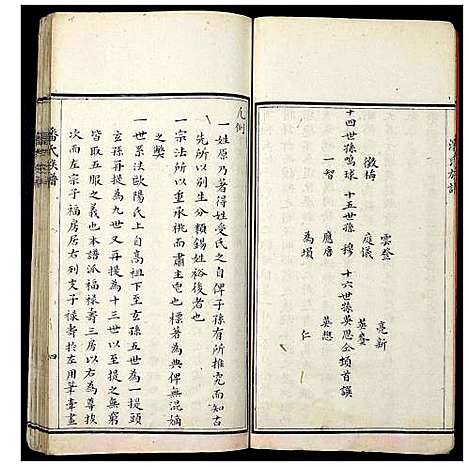 潘氏族譜
十四世孫鳴球 十五世孫 穆 十六世孫英恩仝頓首譔
徵梅 庭儀 英慶
一智 應唐 英想
為塤 仁
雲登 亮新
凡例
一姓原乃著得姓受氏之自俾子孫有所推究而知古
先所以別生分類錫姓裕後者也
一宗法所以重承祧而肅主鬯也標著為典俾無混嫡
之弊
一世系法歐陽氏上自高祖下至玄孫五世為一提頭
玄孫再提為九世又再提為十三世以至提之無窮
皆取五服之義也本譜派福祿壽三房以右為尋挨
次而左宗子福房居右列支子祿壽於左用筆牽畫
潘氏族譜
四